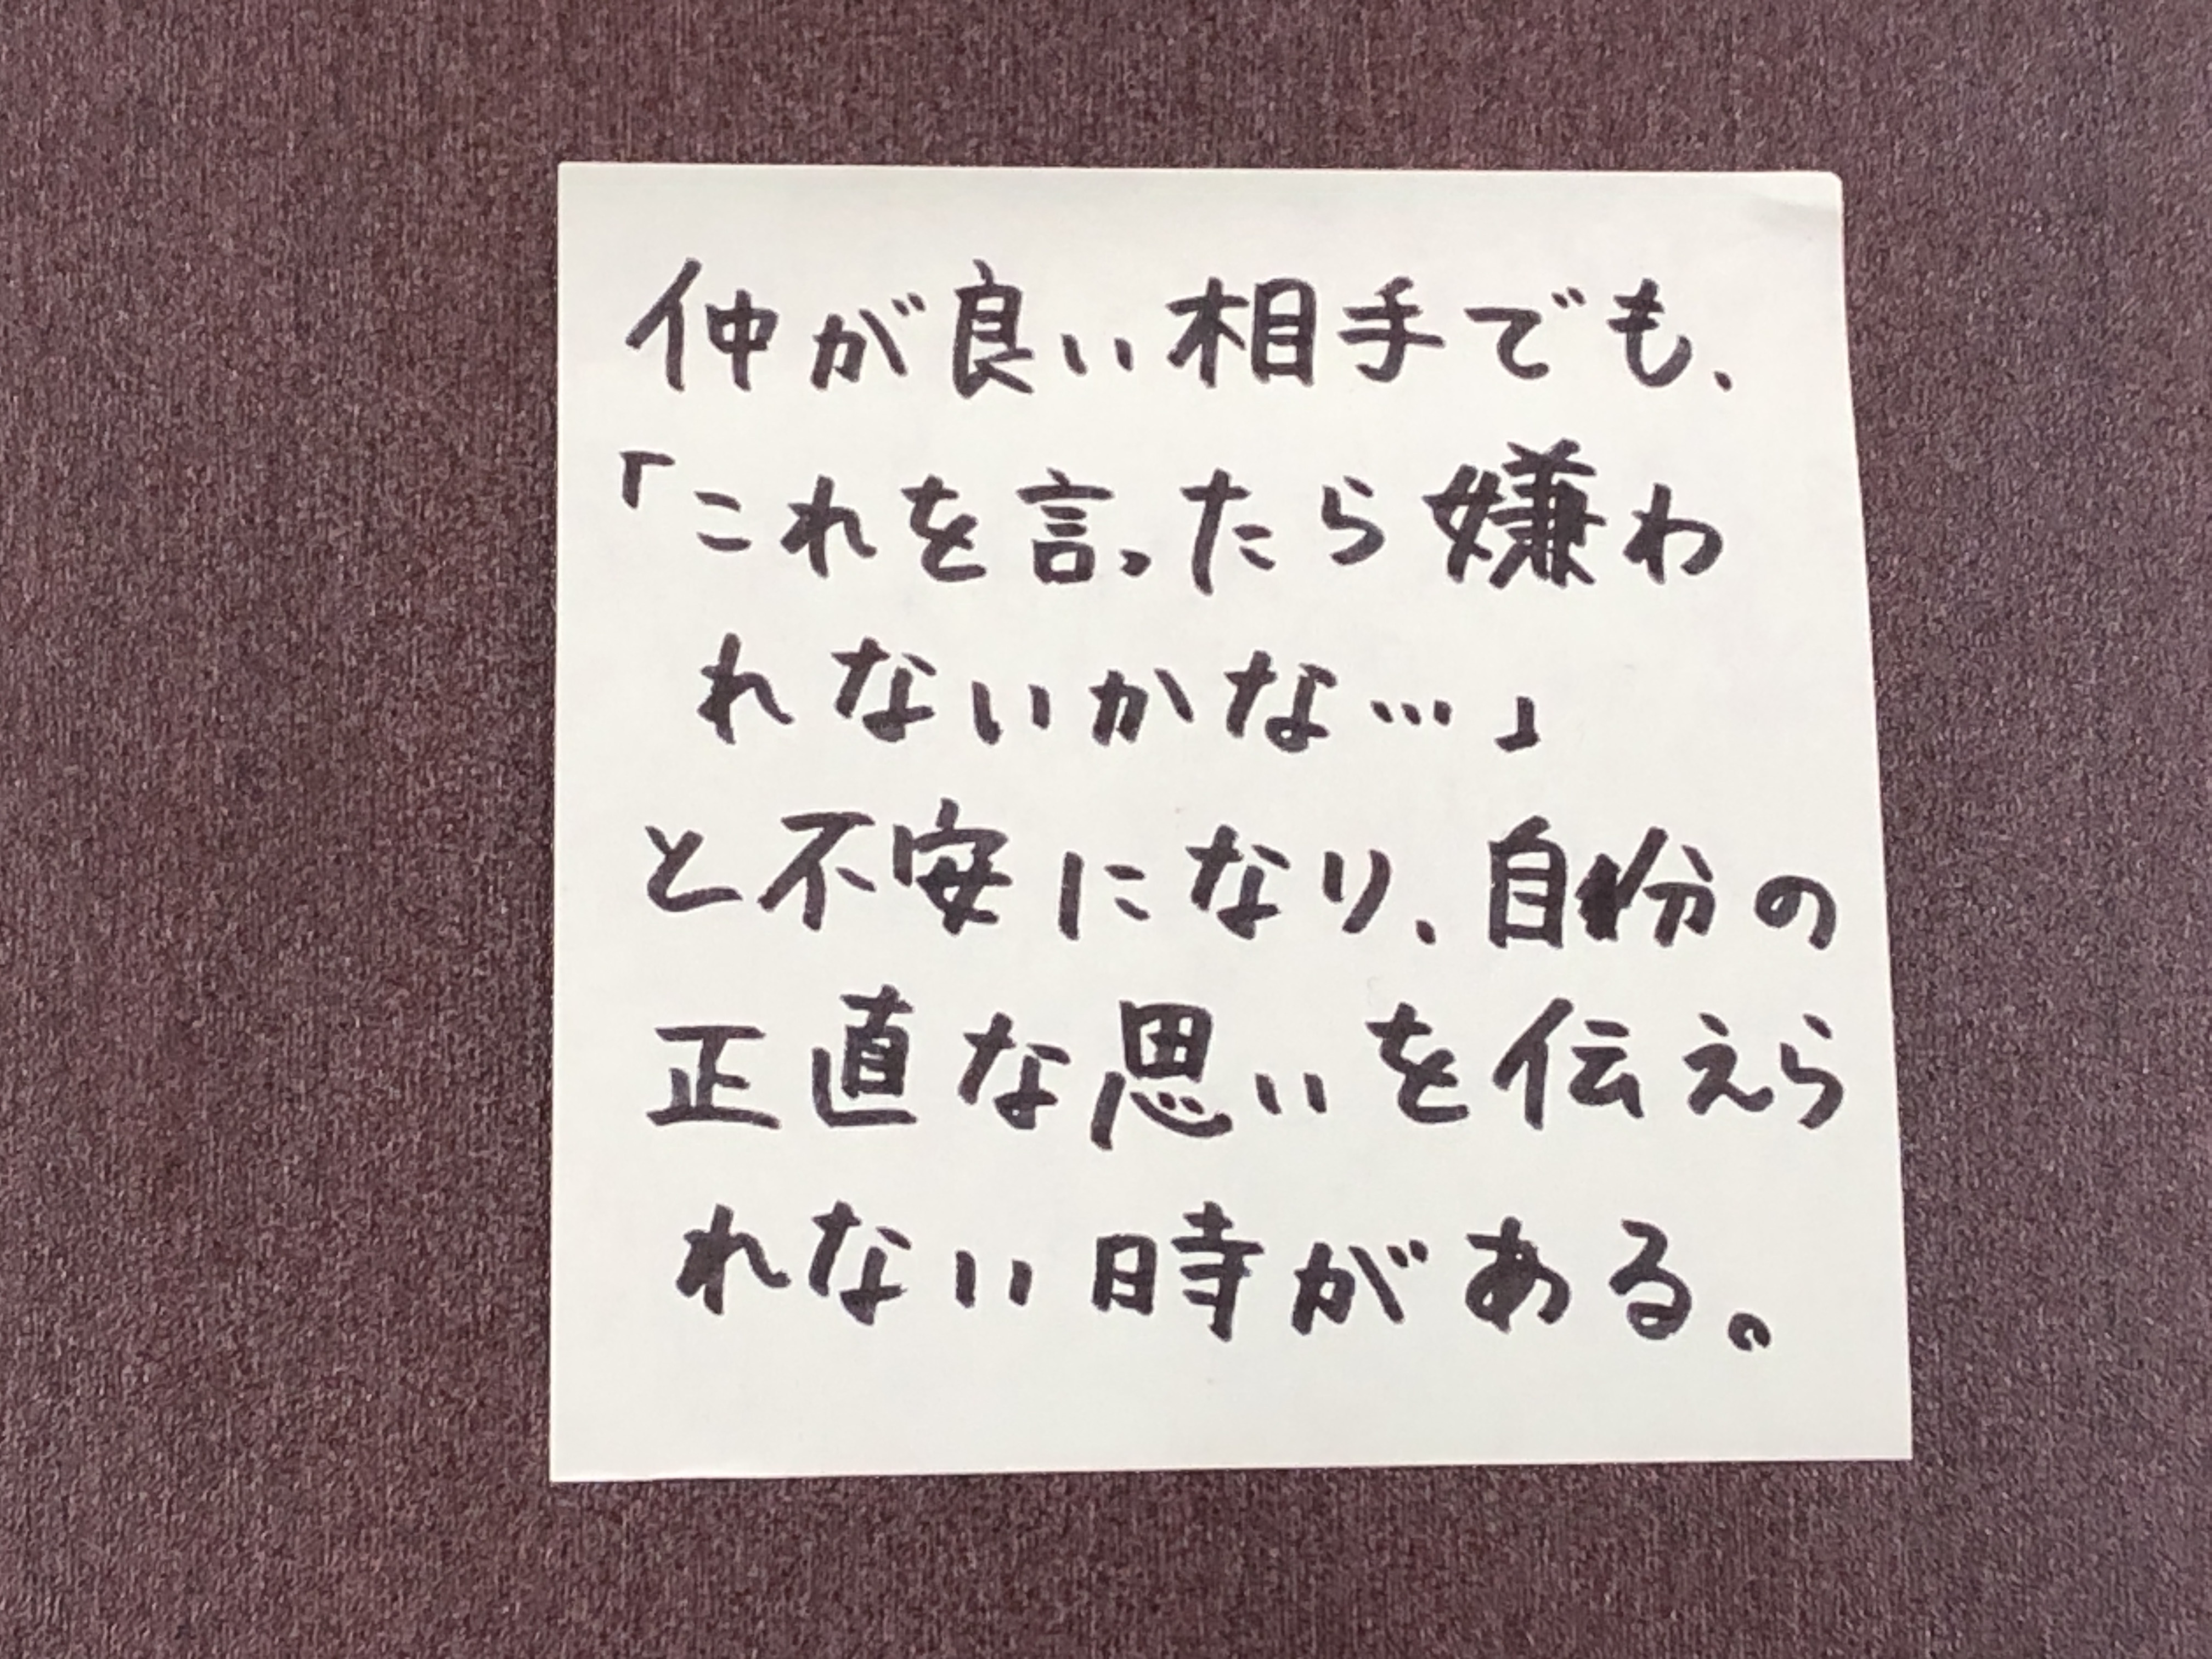 仲が良い相手でも、
「これを言ったら嫌わ
れないかな…」
と不安になり、自分の
正直な思いを伝えら
れない時がある。